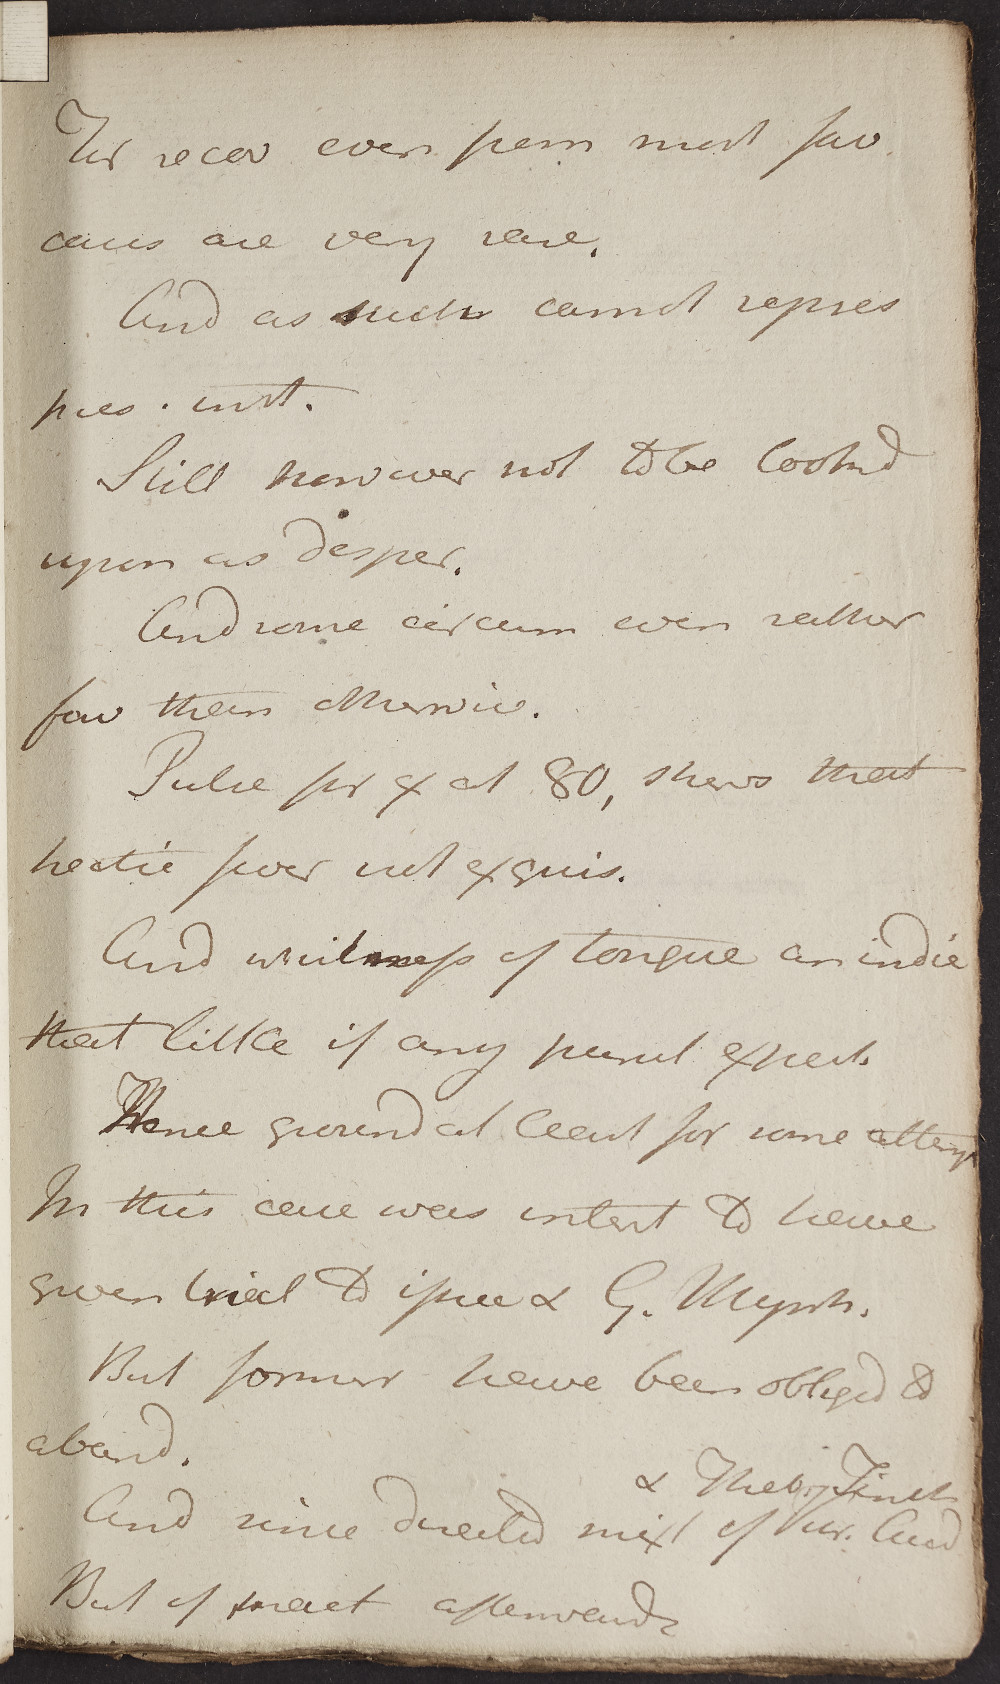 For recov even from most fav
cases are very rare.
And as such cannot repres
pres. inst.
Still however not to be looked
upon as desper.
And some circum even rather
fav than otherwise.
Pulse for ex at 80, shews that
hectic fever not exquis.
And whiteness of tongue an indic
that little if any purul expect.
Hence ground at least for some attempt
In this case was intent to have
given trial to issue & G. Myrrh.
But former have been obliged to
aband.
& Theb. Tinct
And since directed mixt of Vitr. Acid
But of that afterwards